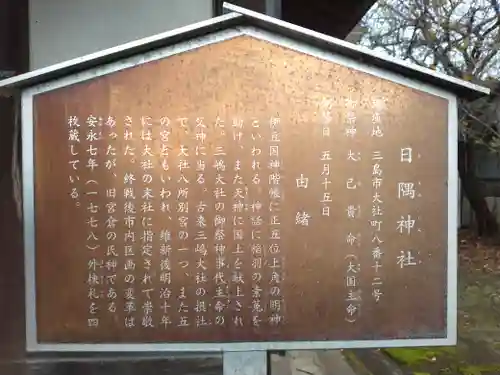 日隅神社
鎮座地 三島市大社町八番十二号
御祭神 大己貴命(大国主命)
例祭日 五月十五日
由緒
伊豆国神階帳に正五位上産の明神
といわれる。神話に稲羽の素菟を
助け、また天神に国土を献上され
た。三嶋大社の御祭神事代主命の
父神に当る。古来三嶋大社の摂社
で、大社八所別宮の一つ、また五
の宮ともいわれ、維新後明治十年
には大社の末社に指定されて崇敬
された。終戦後市内区画の変革は
あったが、旧宮倉の氏神である。
安永七年(一七七八)外棟札を四
枚蔵している。